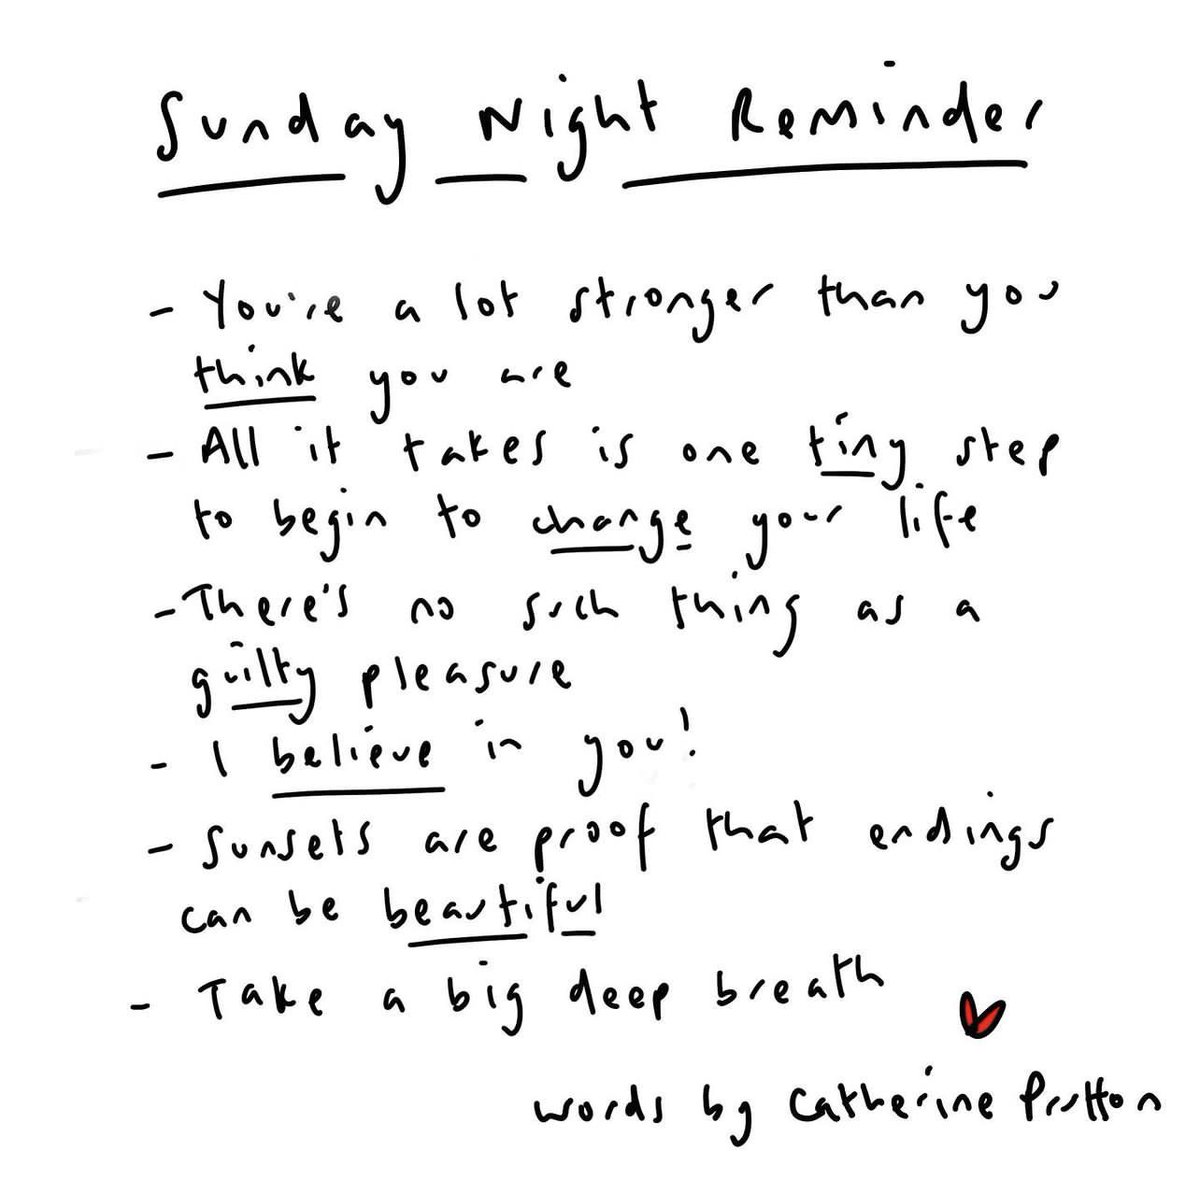 Sunday Night Reminder
- You're a lot stronger than you
think you are
- All it takes is one tiny step
to begin to change your life
- There's no such thing as a
guilty pleasure
- I believe in you!
- Sunsets are proof that endings
can be beautiful
- Take a big deep breath
words by Catherine Prutton